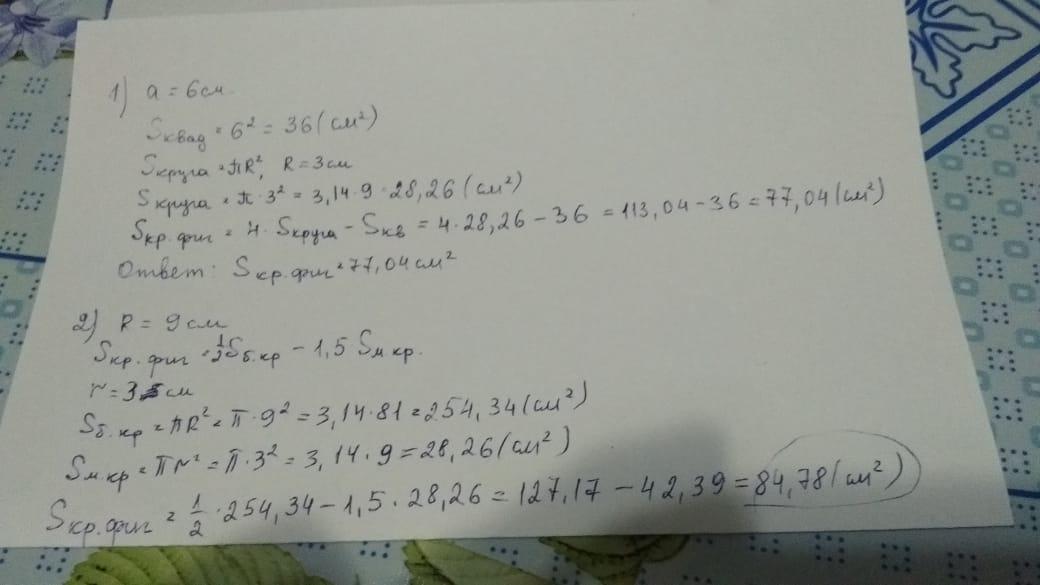 1) a = 6см
Sквад = 6² = 36 (см²)
Sкруга = πR², R = 3см
Sкруга = π · 3² = 3,14 · 9 = 28,26 (см²)
Sкр. фиг = 4 · Sкруга - Sкв = 4 · 28,26 - 36 = 113,04 - 36 = 77,04 (см²)
Ответ: Sкр. фиг = 77,04 см²
2) R = 9см
Sкр. фиг = 1/2 Sб. кр - 1,5 Sм кр.
r = 3 см
Sб. кр = πR² = π · 9² = 3,14 · 81 = 254,34 (см²)
Sм кр = πr² = π · 3² = 3,14 · 9 = 28,26 (см²)
Sкр. фиг = 1/2 · 254,34 - 1,5 · 28,26 = 127,17 - 42,39 = 84,78 (см²)